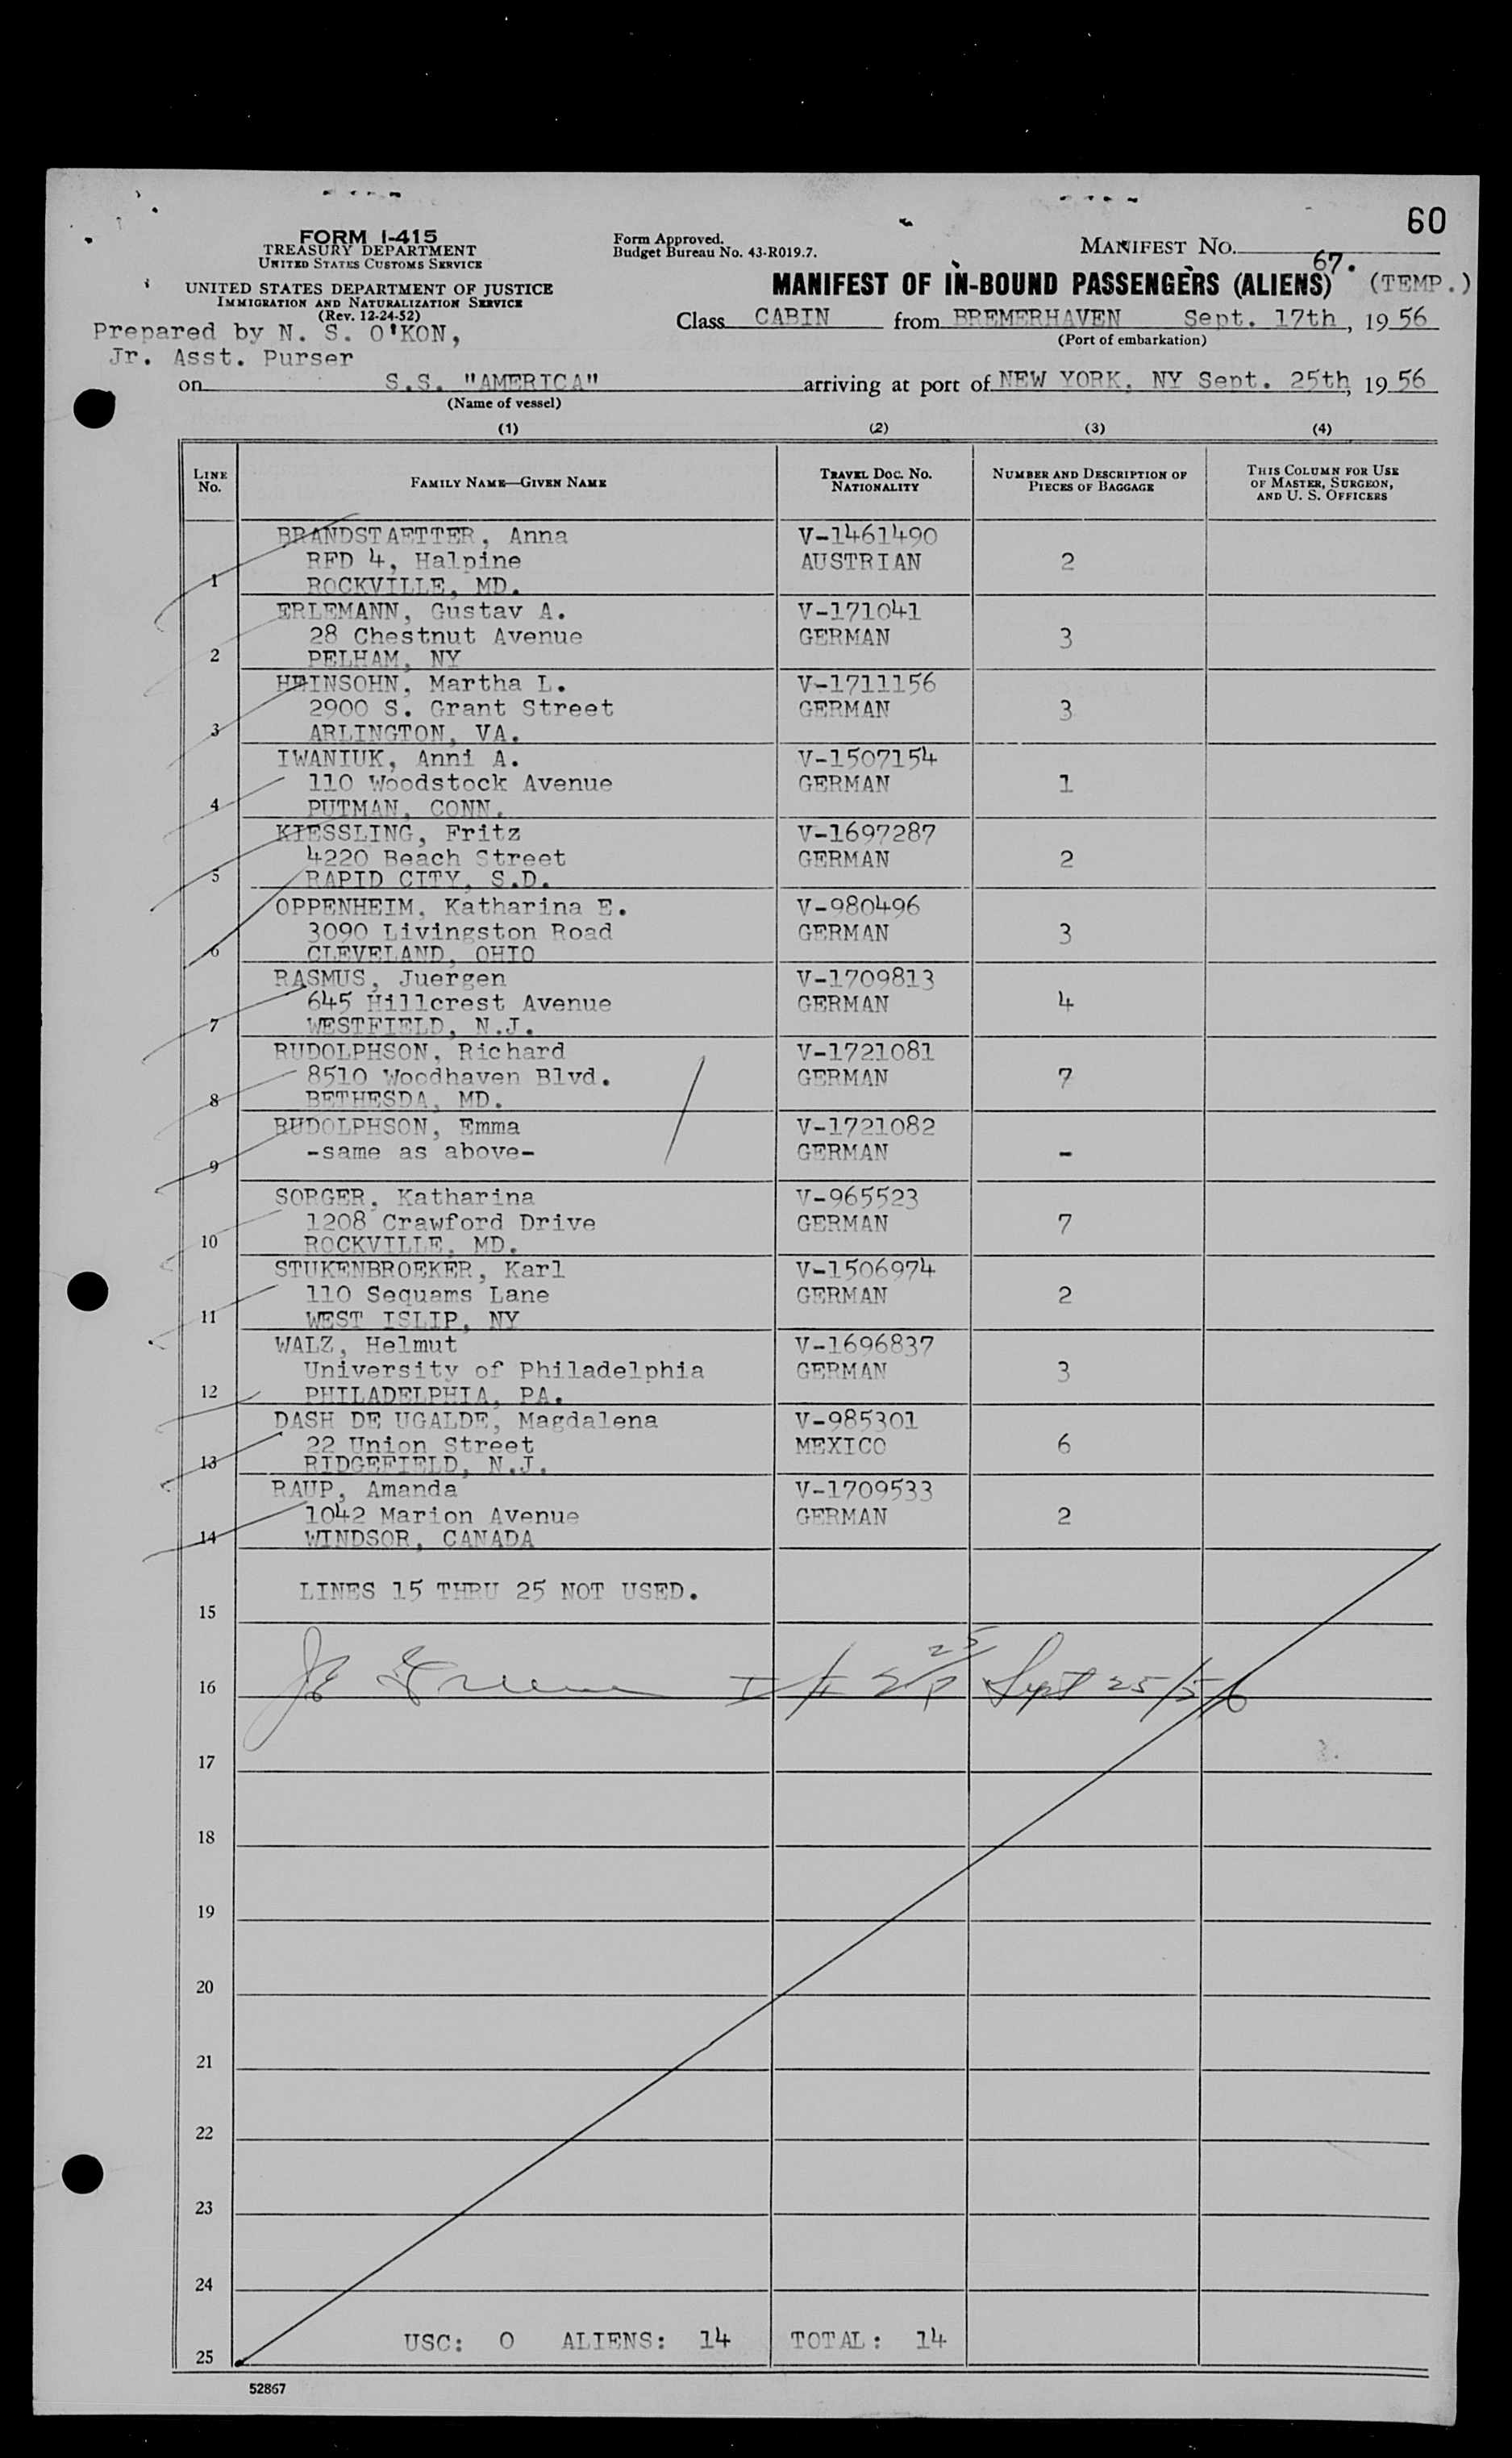 60
FORM I-415
TREASURY DEPARTMENT
UNITED STATES CUSTOMS SERVICE
Form Approved.
Budget Bureau No. 43-R019.7.
MANIFEST NO.
67.
UNITED STATES DEPARTMENT OF JUSTICE
IMMIGRATION AND NATURALIZATION SERVICE
(Rev. 12-24-52)
MANIFEST OF IN-BOUND PASSENGERS (ALIENS) (TEMP.)
Prepared by N. S. O'KON,
Jr. Asst. Purser
Class CABIN from BREMERHAVEN Sept. 17th, 1956
(Port of embarkation)
on S.S. "AMERICA" arriving at port of NEW YORK, NY Sept. 25th, 1956
(Name of vessel)
(1) (2) (3) (4)
LINE No. FAMILY NAME—GIVEN NAME TRAVEL DOC. NO. NATIONALITY NUMBER AND DESCRIPTION OF PIECES OF BAGGAGE THIS COLUMN FOR USE OF MASTER, SURGEON, AND U. S. OFFICERS
BRANDSTAETTER, Anna V-1461490
RFD 4, Halpine AUSTRIAN 2
1 ROCKVILLE, MD.
ERLEMANN, Gustav A. V-171041
28 Chestnut Avenue GERMAN 3
2 PELHAM, NY
HEINSOHN, Martha L. V-1711156
2900 S. Grant Street GERMAN 3
3 ARLINGTON, VA.
IWANIUK, Anni A. V-1507154
110 Woodstock Avenue GERMAN 1
4 PUTMAN, CONN.
KIESSLING, Fritz V-1697287
4220 Beach Street GERMAN 2
5 RAPID CITY, S.D.
OPPENHEIM, Katharina E. V-980496
3090 Livingston Road GERMAN 3
6 CLEVELAND, OHIO
RASMUS, Juergen V-1709813
645 Hillcrest Avenue GERMAN 4
7 WESTFIELD, N.J.
RUDOLPHSON, Richard V-1721081
8510 Woodhaven Blvd. GERMAN 7
8 BETHESDA, MD.
RUDOLPHSON, Emma V-1721082
-same as above- GERMAN -
9
SORGER, Katharina V-965523
1208 Crawford Drive GERMAN 7
10 ROCKVILLE, MD.
STUKENBROEKER, Karl V-1506974
110 Sequams Lane GERMAN 2
11 WEST ISLIP, NY
WALZ, Helmut V-1696837
University of Philadelphia GERMAN 3
12 PHILADELPHIA, PA.
DASH DE UGALDE, Magdalena V-985301
22 Union Street MEXICO 6
13 RIDGEFIELD, N.J.
RAUP, Amanda V-1709533
1042 Marion Avenue GERMAN 2
14 WINDSOR, CANADA
LINES 15 THRU 25 NOT USED.
15
16 Sept 25/56
17
18
19
20
21
22
23
24
USC: 0 ALIENS: 14 TOTAL: 14
25
52867